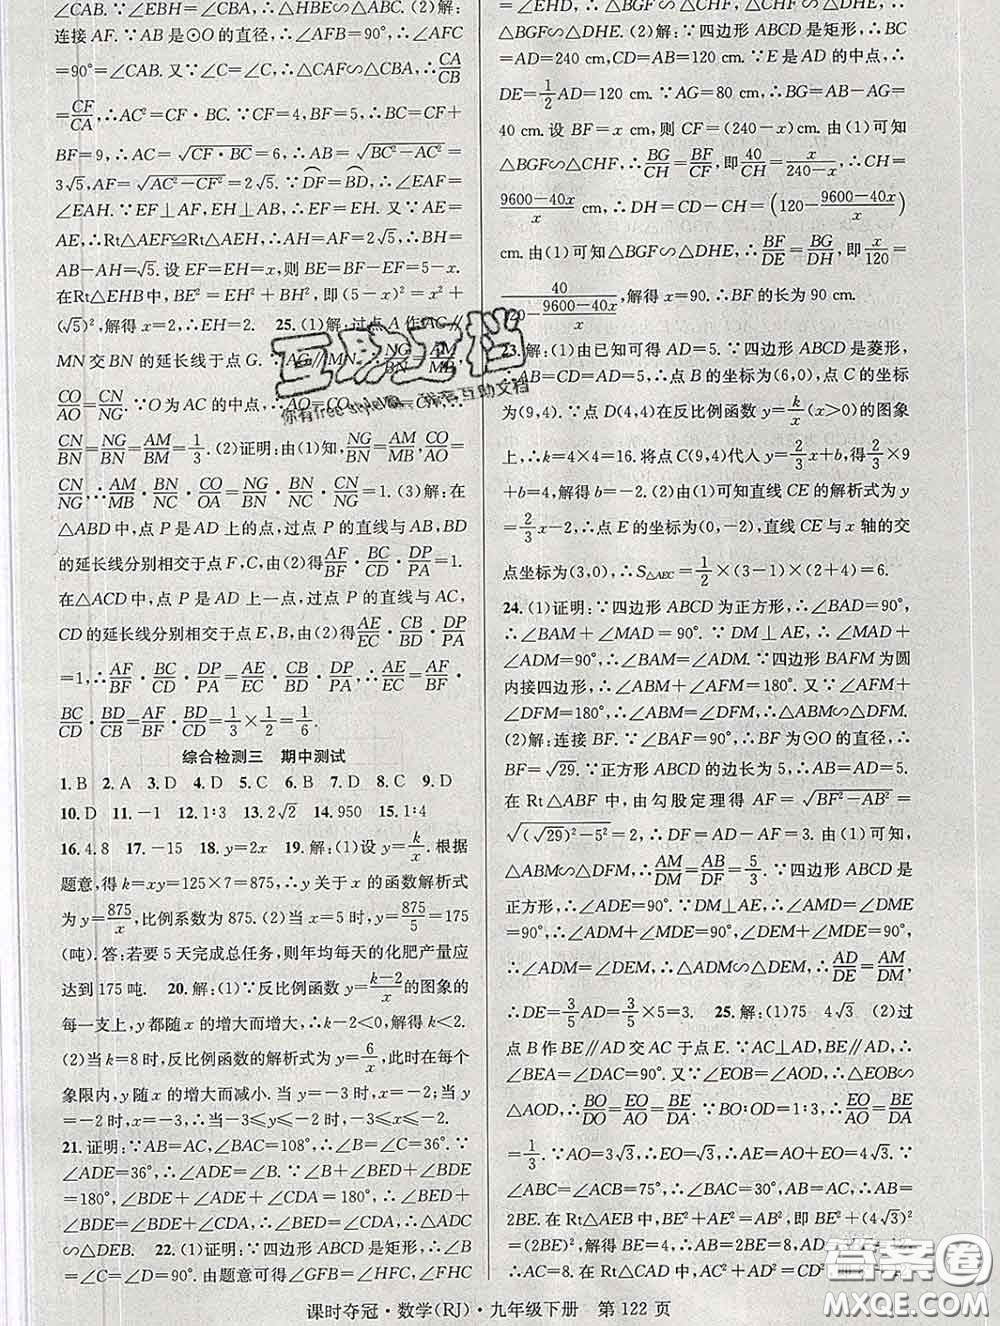 ∠CAB. ∵∠C=∠C, ∴△HBE∽△ABC. (2)解:
连接 AF. ∵AB 是⊙O 的直径, ∴∠AFB=90°, ∴∠AFC
=90°=∠CAB. 又∵∠C=∠C, ∴△CAF∽△CBA, ∴CA/CB
=CF/CA, ∴AC²=CF·BC. ∵CF=4, BF=5, ∴BC=CF+
BF=9, ∴AC=√(CF·BC)=6, ∴AB=√(BC²-AC²)=
3√5, AF=√(AC²-CF²)=2√5. ∵DF=BD, ∴∠EAF=
∠EAH. ∵EF⊥AF, EH⊥AB, ∴EF=EH. 又∵AE=
AE, ∴Rt△AEF≌Rt△AEH, ∴AH=AF=2√5, ∴BH=
AB-AH=√5. 设 EF=EH=x, 则 BE=BF-EF=5-x.
在Rt△EHB中, BE²=EH²+BH², 即(5-x)²=x²+
(√5)², 解得 x=2, ∴EH=2. 25. (1)解: 过点 A 作AG∥
MN 交 BN 的延长线于点 G. ∵AG∥MN, ∴NG/BN=AM/MB,
CO/AO=CN/NG. ∵O为AC 的中点, ∴AO=CO, ∴CN=NG, ∴
CN/BN=NG/BN=AM/BM=1/3. (2)证明: 由(1)知NG/BN=AM/MB, CO/AO=
CN/NG, ∴AM/MB·BN/NC·CO/OA=NG/BN·BN/NC·CN/NG=1. (3)解: 在
△ABD 中, 点 P 是 AD 上的点, 过点 P 的直线与 AB, BD
的延长线分别相交于点 F, C, 由(2)得AF/BF·BC/CD·DP/PA=1.
在△ACD 中, 点 P 是 AD 上一点, 过点 P 的直线与 AC,
CD 的延长线分别相交于点 E, B, 由(2)得AE/EC·CB/BD·DP/PA
=1, ∴AF/BF·BC/CD·DP/PA=AE/EC·CB/BD·DP/PA, ∴AE/EC=AF/BF·
BC/CD·BD/CB=AF/BF·BD/CD=1/3×1/2=1/6.
综合检测三 期中测试
1. B 2. A 3. D 4. D 5. C 6. B 7. D 8. C 9. D
10. D 11. -1 12. 1:3 13. 2√2 14. 950 15. 1:4
16. 4.8 17. -15 18. y=2x 19. 解: (1)设 y=k/x. 根据
题意, 得 k=xy=125×7=875, ∴y 关于 x 的函数解析式
为 y=875/x, 比例系数为 875. (2)当 x=5 时, y=875/5=175
(吨). 答: 若要 5 天完成总任务, 则年均每天的化肥产量应
达到 175 吨. 20. 解: (1)∵反比例函数 y=(k-2)/x的图象的
每一支上, y 都随 x 的增大而增大, ∴k-2<0, 解得 k<2.
(2)当 k=8 时, 反比例函数的解析式为 y=6/x, 此时在每个
象限内, y 随 x 的增大而减小. 当 x=-3 时, y=-2; 当 x
=-2 时, y=-3, ∴当-3≤y≤-2 时, -3≤x≤-2.
21. 证明: ∵AB=AC, ∠BAC=108°, ∴∠B=∠C=36°. ∵
∠ADE=36°, ∴∠ADE=∠B. ∵∠B+∠BED+∠BDE
=180°, ∠BDE+∠ADE+∠CDA=180°, ∴∠BED+
∠BDE=∠BDE+∠CDA, ∴∠BED=∠CDA, ∴△ADC
∽△DEB. 22. (1)证明: ∵四边形 ABCD 是矩形, ∴∠B
=∠C=∠D=90°. 由题意可得∠GFB=∠HFC, ∠FHC
=∠EHD, ∴△BGF∽△CHF, △CHF∽△DHE,
∴△BGF∽△DHE. (2)解: ∵四边形 ABCD 是矩形, ∴BC
=AD=240 cm, CD=AB=120 cm. ∵E 是 AD 的中点, ∴
DE=1/2AD=120 cm. ∵AG=80 cm, ∴BG=AB-AG=
40 cm. 设 BF=x cm, 则 CF=(240-x)cm. 由(1)可知
△BGF∽△CHF, ∴BG/CH=BF/CF, 即40/CH=x/(240-x), ∴CH=
(9600-40x)/x cm, ∴DH=CD-CH=(120-(9600-40x)/x)
cm. 由(1)可知△BGF∽△DHE, ∴BF/DE=BG/DH, 即x/120=
40/(120-(9600-40x)/x), 解得 x=90. ∴BF 的长为 90 cm.
23. 解: (1)由已知可得 AD=5. ∵四边形 ABCD 是菱形,
∴AB=CD=5, ∴点 B 的坐标为(6,0), 点 C 的坐标为
(9,4). ∵点 D(4,4)在反比例函数 y=k/x(x>0)的图象
上, ∴k=4×4=16. 将点 C(9,4)代入 y=2/3x+b, 得2/3×9
+b=4, 解得 b=-2. (2)由(1)可知直线 CE 的解析式为 y
=2/3x-2, ∴点 E 的坐标为(0,-2), 直线 CE 与 x 轴的交
点坐标为(3,0), ∴S△AEC=1/2×(3-1)×(2+4)=6.
24. (1)证明: ∵四边形 ABCD 为正方形, ∴∠BAD=90°,
∴∠BAM+∠MAD=90°. ∵DM⊥AE, ∴∠MAD+
∠ADM=90°, ∴∠BAM=∠ADM. ∵四边形 BAFM 为圆
内接四边形, ∴∠ABM+∠AFM=180°. 又∵∠AFM+
∠DFM=180°, ∴∠ABM=∠DFM, ∴△ABM∽△DFM.
(2)解: 连接 BF. ∵∠BAF=90°, ∴BF 为⊙O 的直径, ∴BF
=√29. ∵正方形 ABCD 的边长为 5, ∴AD=AB=5.
在 Rt△ABF 中, 由勾股定理得 AF=√(BF²-AB²)=
√((√29)²-5²)=2, ∴DF=AD-AF=3. 由(1)可知,
△ABM∽△DFM, ∴AM/DM=AB/DF=5/3. ∵四边形 ABCD 是正
方形, ∴∠ADE=90°. ∵DM⊥AE, ∴∠AMD=∠DME
=90°, ∴∠ADM+∠MDE=90°, ∠MDE+∠MED=90°,
∴∠ADM=∠DEM, ∴△ADM∽△DEM, ∴AD/DE=AM/DM,
∴DE=3/5AD=3/5×5=3. 25. 解: (1)75 4√3 (2)过
点 B 作 BE∥AD 交 AC 于点 E. ∵AC⊥AD, ∴
∠BEA=∠DAC=90°. 又∵∠EOB=∠AOD, ∴△BOE∽
△AOD, ∴BO/DO=EO/AO=BE/DA. ∵BO:OD=1:3, ∴EO/AO=BE/DA
=1/3. ∵AO=3√3, ∴EO=√3, ∴AE=AO+EO=4√3. ∵
∠ABC=∠ACB=75°, ∴∠BAC=30°, AB=AC, ∴AB=
2BE. 在 Rt△AEB 中, BE²+AE²=AB², 即 BE²+(4√3)²
=(2BE)². 解得 BE=4, ∴AB=2BE=8,
∴AC=8. 在 Rt
课时夺冠·数学(RJ)·九年级下册 第 122 页
互助文档
答案圈